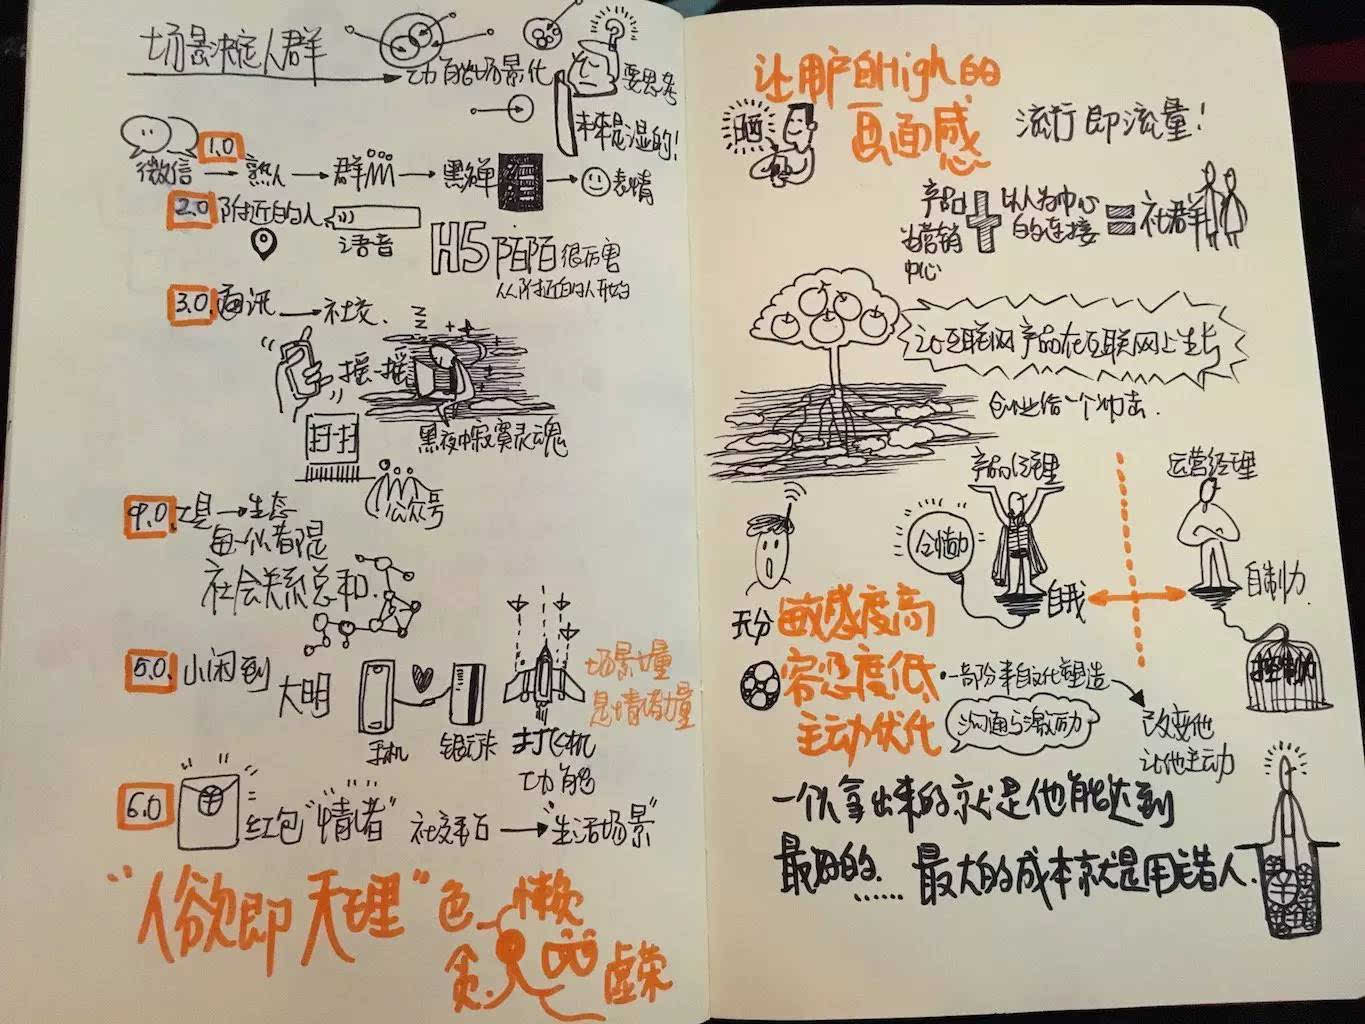 场景决定人群
功能场景化
要思考
未来是湿的!
1.0
微信 → 熟人 → 群 → 黑蝉 → 表情
2.0 附近的人
语音
H5 陌陌 很厉害
从附近的人开始
3.0 通讯 → 社交
摇一摇
zz
扫一扫
黑夜中寂寞灵魂
公众号
4.0 工具 → 生态
每一个都是
社会关系总和.
5.0. 小闲到
大明
手机
银行卡
打飞机
功能
场景力量
是情绪力量
6.0
红包"情绪"
社交
→ "生活场景"
"人欲即天理"
色
懒
贪
虚荣
让用户自High的
画面感
晒
流行即流量!
产品
营销
中心
以人为中心
的连接
= 社群
让互联网产品在互联网上生长
创业给一个冲击.
产品经理
运营经理
自我
自制力
控制力
天分 敏感度高
容忍度低
主动优化
一部分来自文化塑造
沟通与激励力
改变他
让他主动
一个人拿出来的就是他能达到
最好的...... 最大的成本就是用错人.